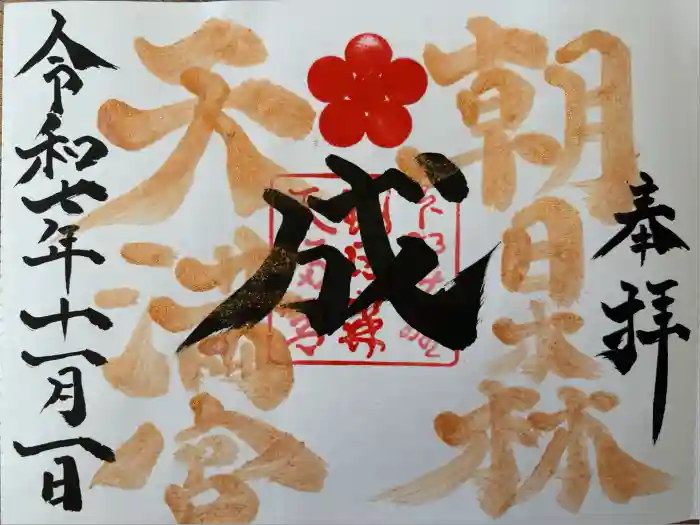 奉拝
朝日森
天満宮
成
令和七年十一月一日